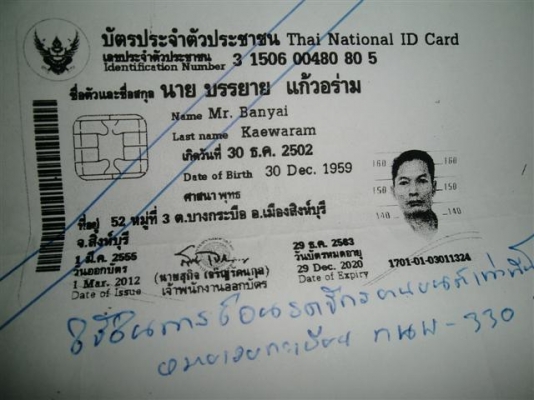 บัตรประจำตัวประชาชน Thai National ID Card
เลขประจำตัวประชาชน 3 1506 00480 80 5
Identification Number
ชื่อตัวและชื่อสกุล นาย บรรยาย แก้วอร่าม
Name Mr. Banyai
Last name Kaewaram
เกิดวันที่ 30 ธ.ค. 2502
Date of Birth 30 Dec. 1959
ศาสนา พุทธ
160 160
150 150
140 140
ที่อยู่ 52 หมู่ที่ 3 ต.บางกระบือ อ.เมืองสิงห์บุรี
จ.สิงห์บุรี
1 มี.ค. 2555
วันออกบัตร
1 Mar. 2012
Date of Issue
เจ้าพนักงานออกบัตร
29 ธ.ค. 2563
วันบัตรหมดอายุ
29 Dec. 2020
Date of Expiry
1701-01-03011324
ใช้ในการโอนรถจักรยานยนต์เท่านั้น
หมายเลขทะเบียน ทนพ-330